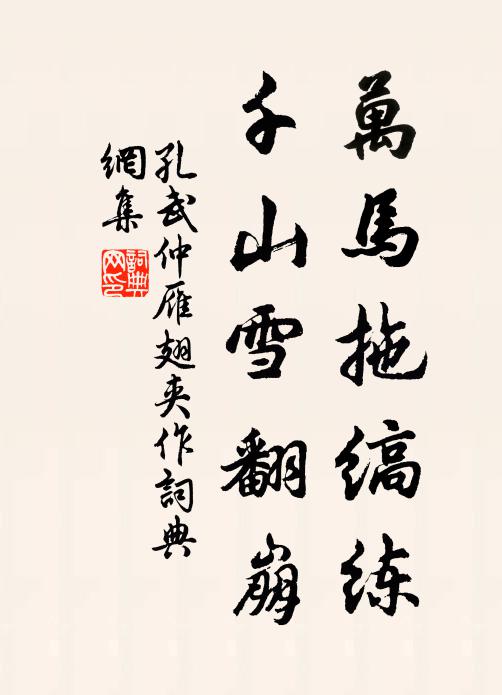 萬馬拖縞练
千山雪翻崩
孔武仲雁翅夹作詞典
網集
詞典
网印